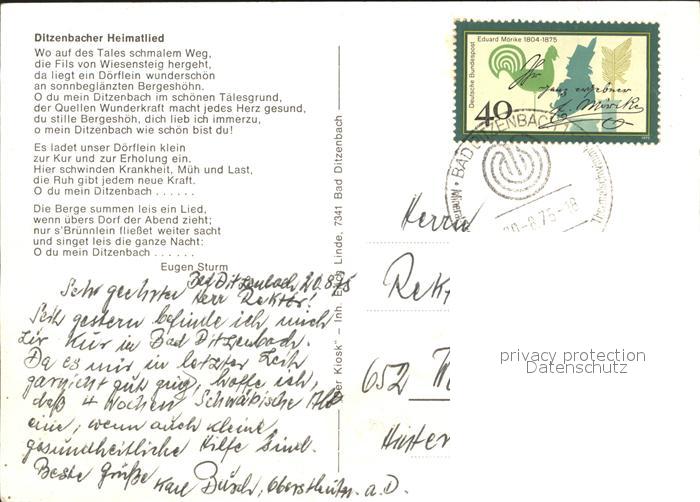 Ditzenbacher Heimatlied
Wo auf des Tales schmalem Weg,
die Fils von Wiesensteig hergeht,
da liegt ein Dörflein wunderschön
an sonnbeglänzten Bergeshöhn.
O du mein Ditzenbach im schönen Tälesgrund,
der Quellen Wunderkraft macht jedes Herz gesund,
du stille Bergeshöh, dich lieb ich immerzu,
o mein Ditzenbach wie schön bist du!
Es ladet unser Dörflein klein
zur Kur und zur Erholung ein.
Hier schwinden Krankheit, Müh und Last,
die Ruh gibt jedem neue Kraft.
O du mein Ditzenbach . . . . . .
Die Berge summen leis ein Lied,
wenn übers Dorf der Abend zieht;
nur s'Brünnlein fließet weiter sacht
und singet leis die ganze Nacht:
O du mein Ditzenbach . . . . . .
Eugen Sturm
Bad Ditzenbach, 20.8.75
Sehr geehrter Herr Rektor!
Seit gestern befinde ich mich
zur Kur in Bad Ditzenbach.
Da es mir in letzter Zeit
garnicht gut ging, hoffe ich,
daß 4 Wochen Schwäbische Alb
eine, wenn auch kleine,
gesundheitliche Hilfe sind.
Beste Grüße
Karl Büsch, Oberstleutn. a. D.
er Kiosk" – Inh. Linde, 7341 Bad Ditzenbach
Deutsche Bundespost
Eduard Mörike 1804-1875
Ihr
ganz ergebner
E. Mörike
40
1975
BAD DITZENBACH
20-8.75-18
Thermalmineralbad
Herrn
Rek
652 W
Hinter
privacy protection
Datenschutz